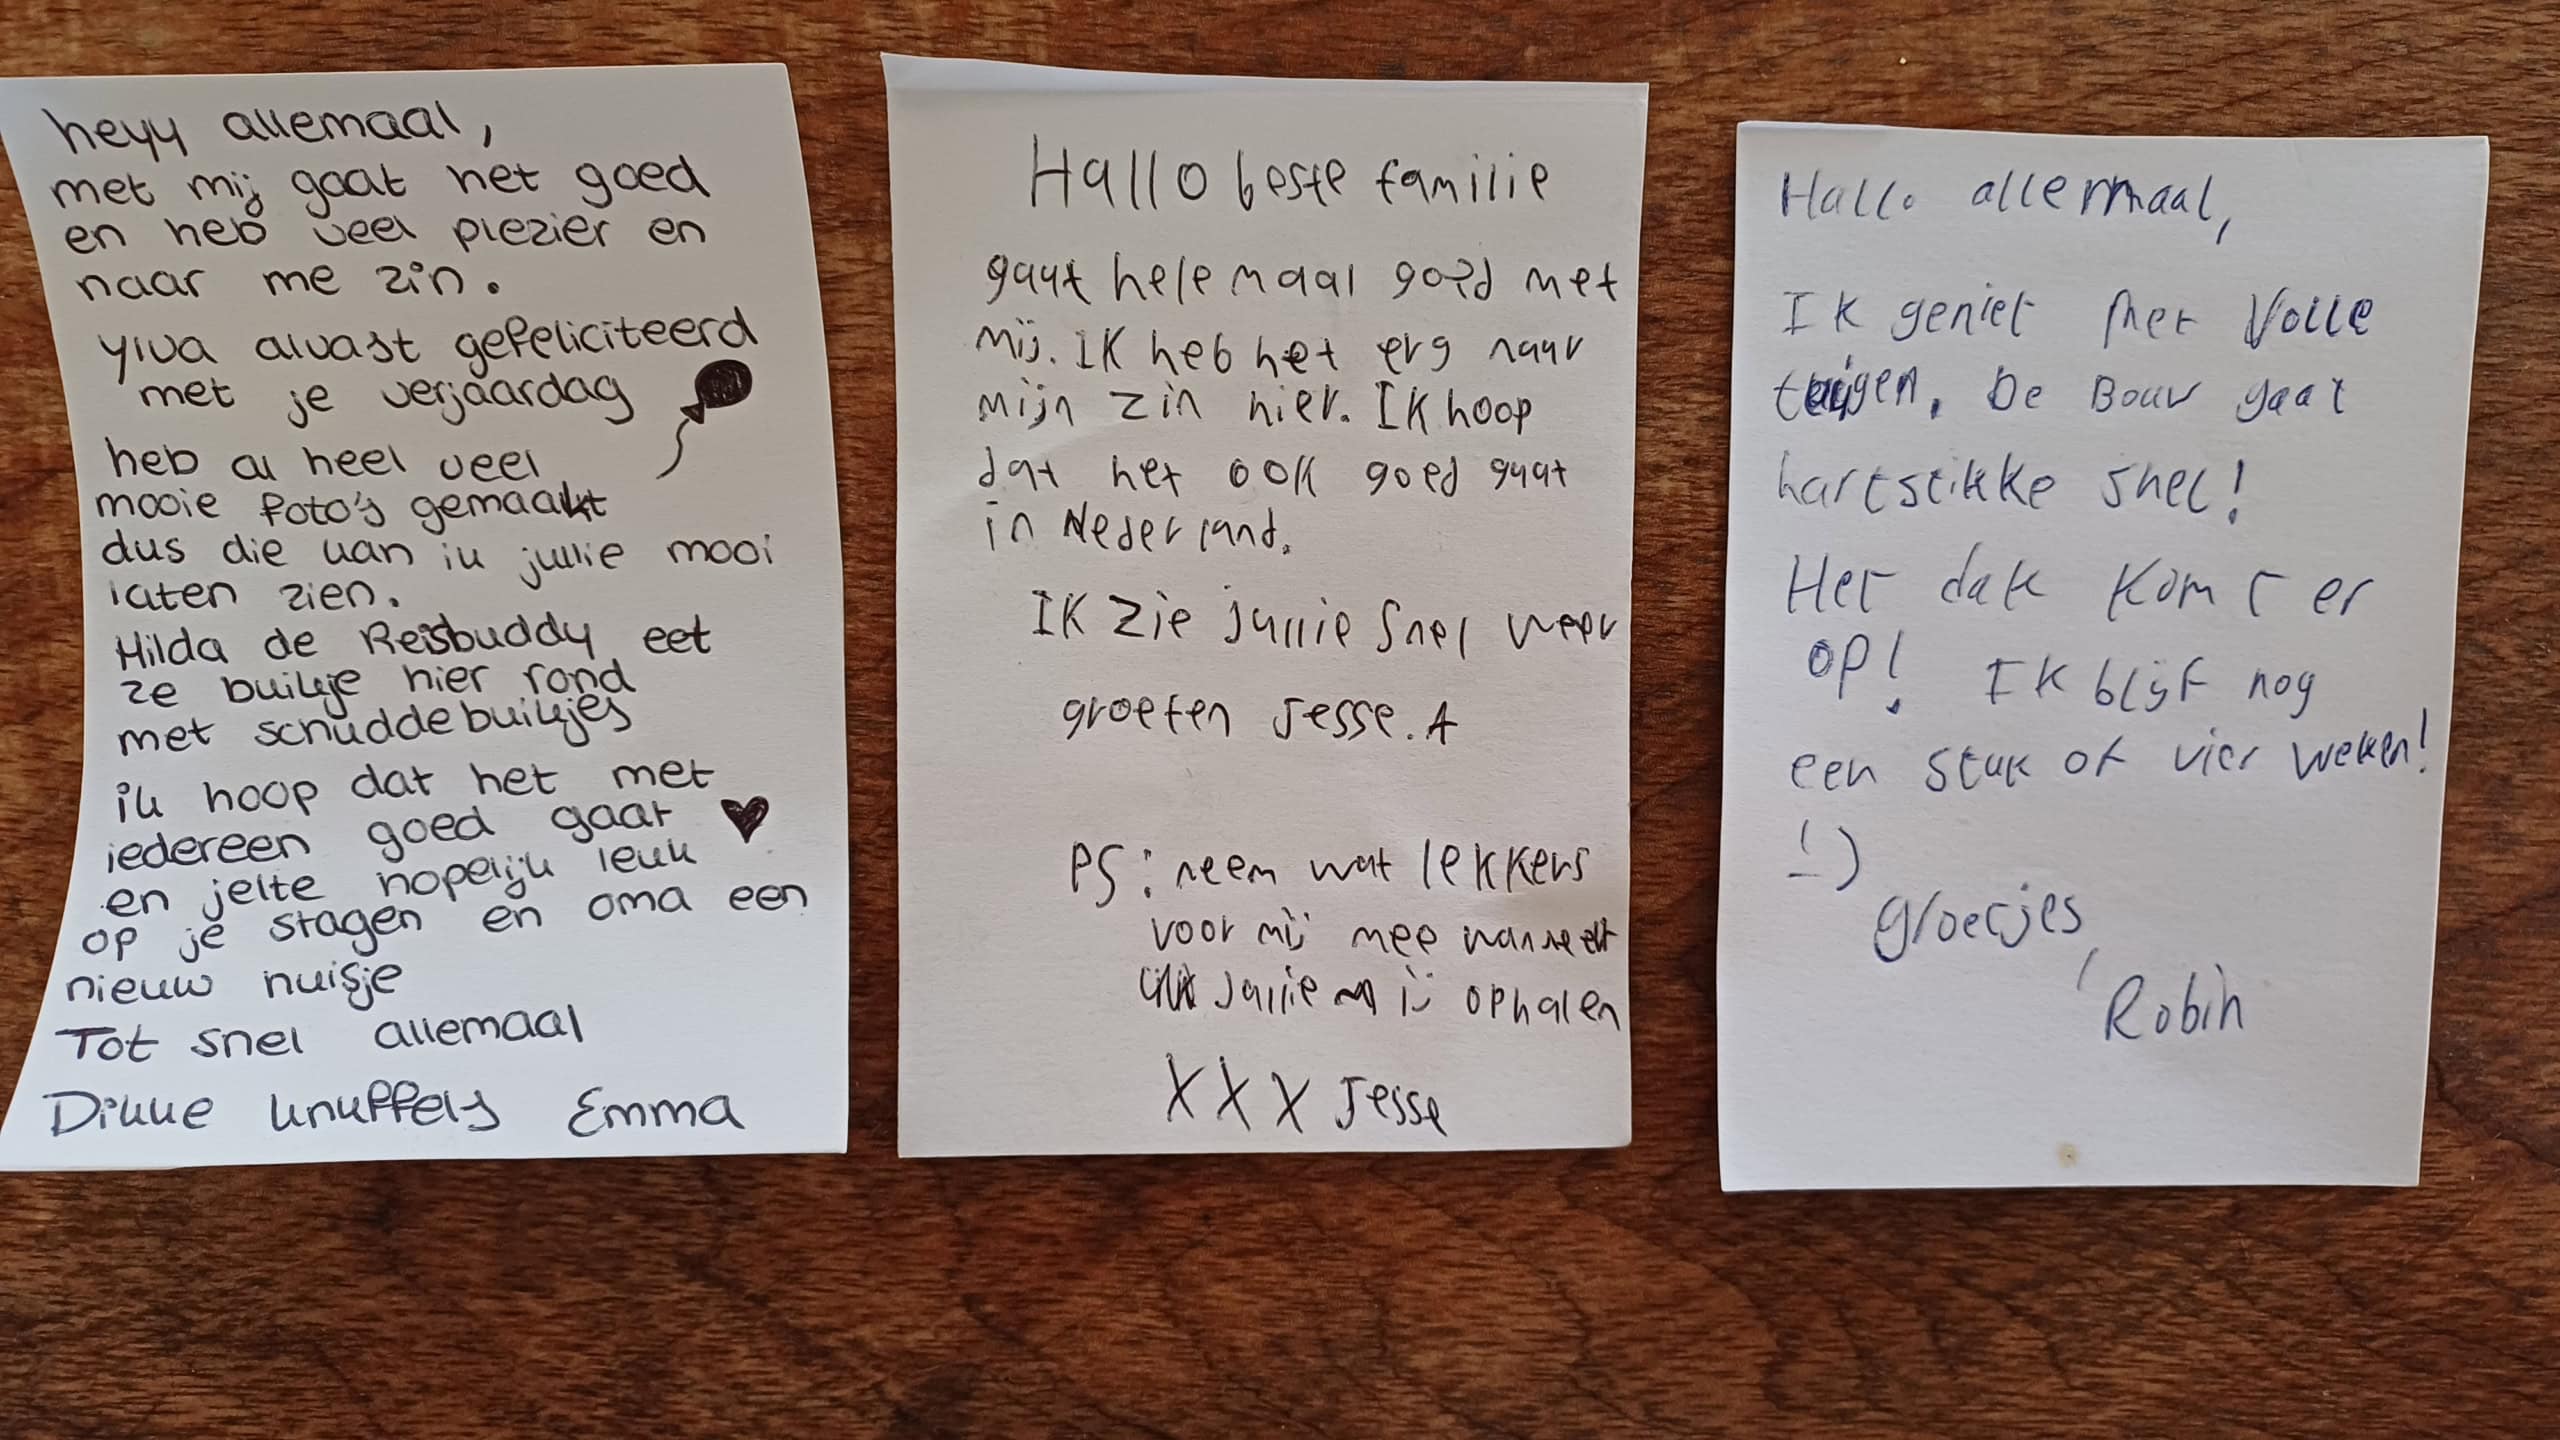 heyy allemaal,
met mij gaat het goed
en heb veel plezier en
naar me zin.
Ylva alvast gefeliciteerd
met je verjaardag
heb al heel veel
mooie foto's gemaakt
dus die kan ik jullie mooi
laten zien.
Hilda de Reisbuddy eet
ze buikje hier rond
met schuddebuikjes
ik hoop dat het met
iedereen goed gaat
en jelte hopelijk leuk
op je stagen en oma een
nieuw huisje
Tot snel allemaal
Dikke knuffels Emma
Hallo beste familie
gaat helemaal goed met
mij. IK heb het erg naar
mijn zin hier. IK hoop
dat het ook goed gaat
in Nederland.
IK zie jullie snel weer
groeten Jesse.A
PS: neem wat lekkers
voor mij mee wanneer
jullie mij ophalen
XXX Jesse
Hallo allemaal,
IK geniet met volle
teugen. De Bouw gaat
hartstikke snel!
Het dak komt er
op! IK blijf nog
een stuk of vier weken!
:)
groetjes,
Robin